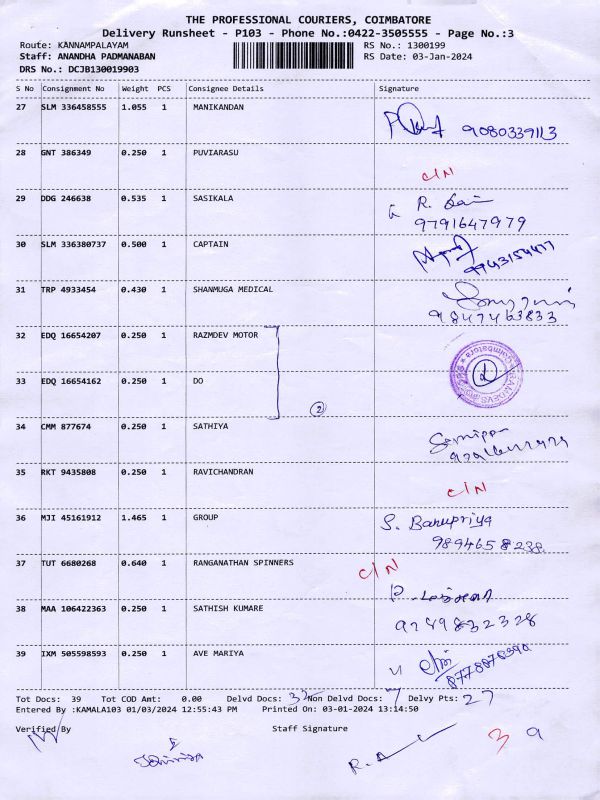 THE PROFESSIONAL COURIERS, COIMBATORE
Delivery Runsheet - P103 - Phone No.:0422-3505555 - Page No.:3
Route: KANNAMPALAYAM RS No.: 1300199
Staff: ANANDHA PADMANABAN RS Date: 03-Jan-2024
DRS No.: DCJB130019903
S No Consignment No Weight PCS Consignee Details Signature
27 SLM 336458555 1.055 1 MANIKANDAN
9080339113
28 GNT 386349 0.250 1 PUVIARASU
C/N
29 DDG 246638 0.535 1 SASIKALA
R.
9791647979
30 SLM 336380737 0.500 1 CAPTAIN
9943154477
31 TRP 4933454 0.430 1 SHANMUGA MEDICAL
9847463833
32 EDQ 16654207 0.250 1 RAZMDEV MOTOR
33 EDQ 16654162 0.250 1 DO
2
34 CMM 877674 0.250 1 SATHIYA
35 RKT 9435808 0.250 1 RAVICHANDRAN
C/N
36 MJI 45161912 1.465 1 GROUP
S. Banupriya
9894658238
37 TUT 6680268 0.640 1 RANGANATHAN SPINNERS
C/N
38 MAA 106422363 0.250 1 SATHISH KUMARE
9789832328
39 IXM 505598593 0.250 1 AVE MARIYA
Tot Docs: 39 Tot COD Amt: 0.00 Delvd Docs: 32 Non Delvd Docs: 7 Delvy Pts: 27
Entered By :KAMALA103 01/03/2024 12:55:43 PM Printed On: 03-01-2024 13:14:50
Verified By Staff Signature
39